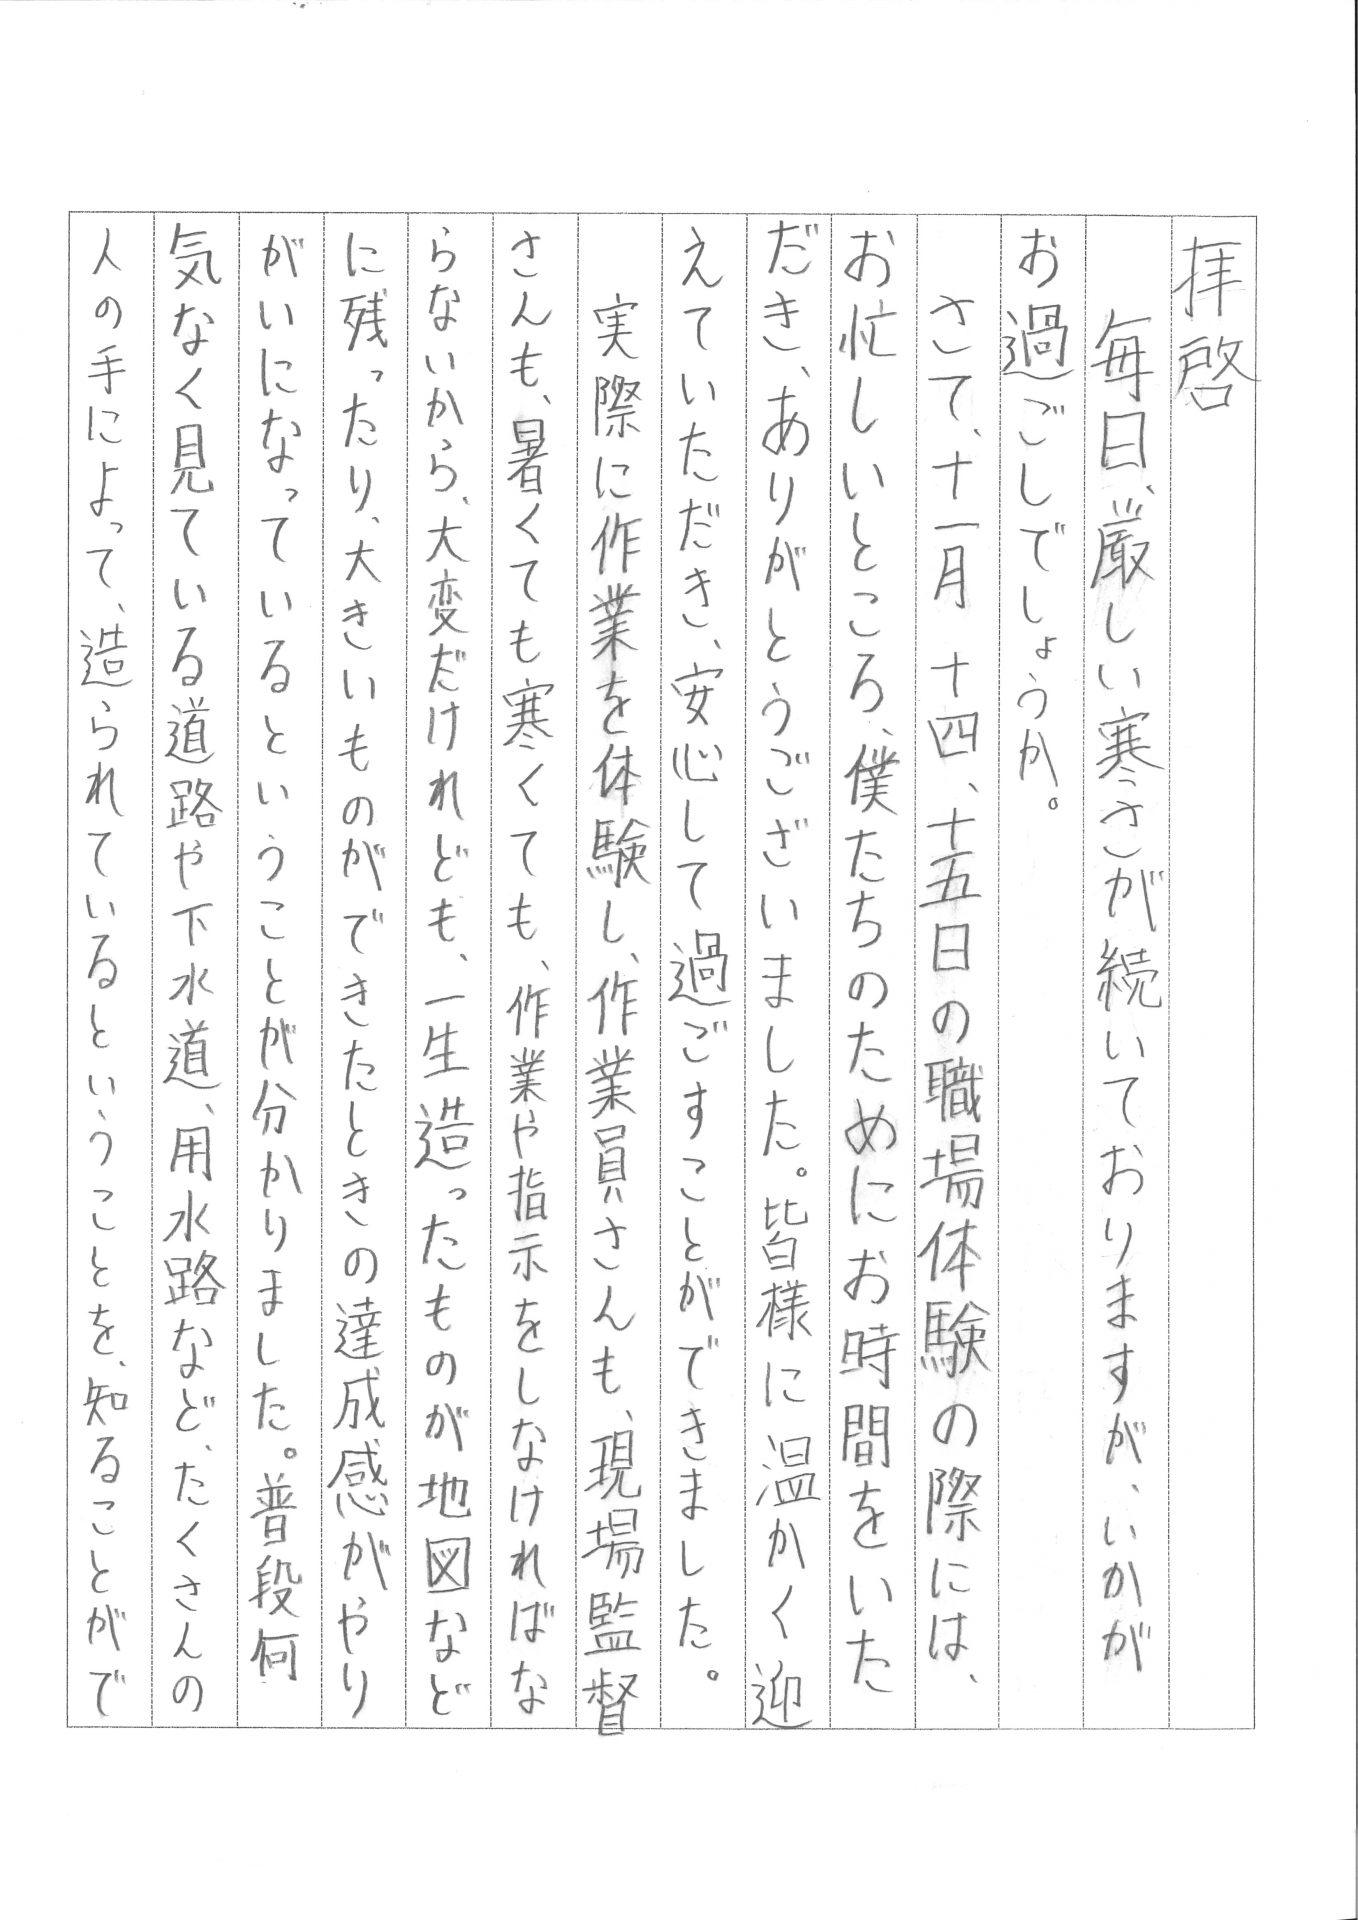 拝啓
毎日、厳しい寒さが続いておりますが、いかが
お過ごしでしょうか。
さて、十一月十四、十五日の職場体験の際には、
お忙しいところ、僕たちのためにお時間をいた
だき、ありがとうございました。皆様に温かく迎
えていただき、安心して過ごすことができました。
実際に作業を体験し、作業員さんも、現場監督
さんも、暑くても寒くても、作業や指示をしなければな
らないから、大変だけれども、一生造ったものが地図など
に残ったり、大きいものができたときの達成感がやり
がいになっているということが分かりました。普段何
気なく見ている道路や下水道、用水路など、たくさんの
人の手によって、造られているということを、知ることがで